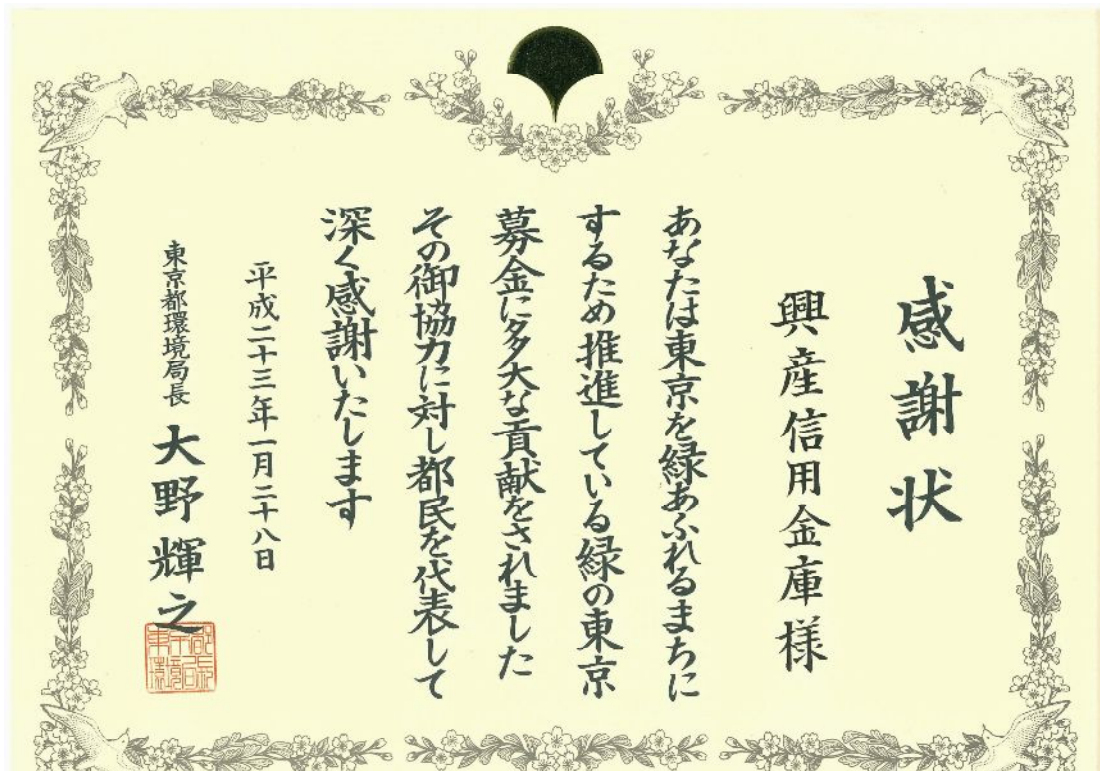 感謝状
興産信用金庫様
あなたは東京を緑あふれるまちに
するため推進している緑の東京
募金に多大な貢献をされました
その御協力に対し都民を代表して
深く感謝いたします
平成二十三年一月二十八日
東京都環境局長 大野輝之